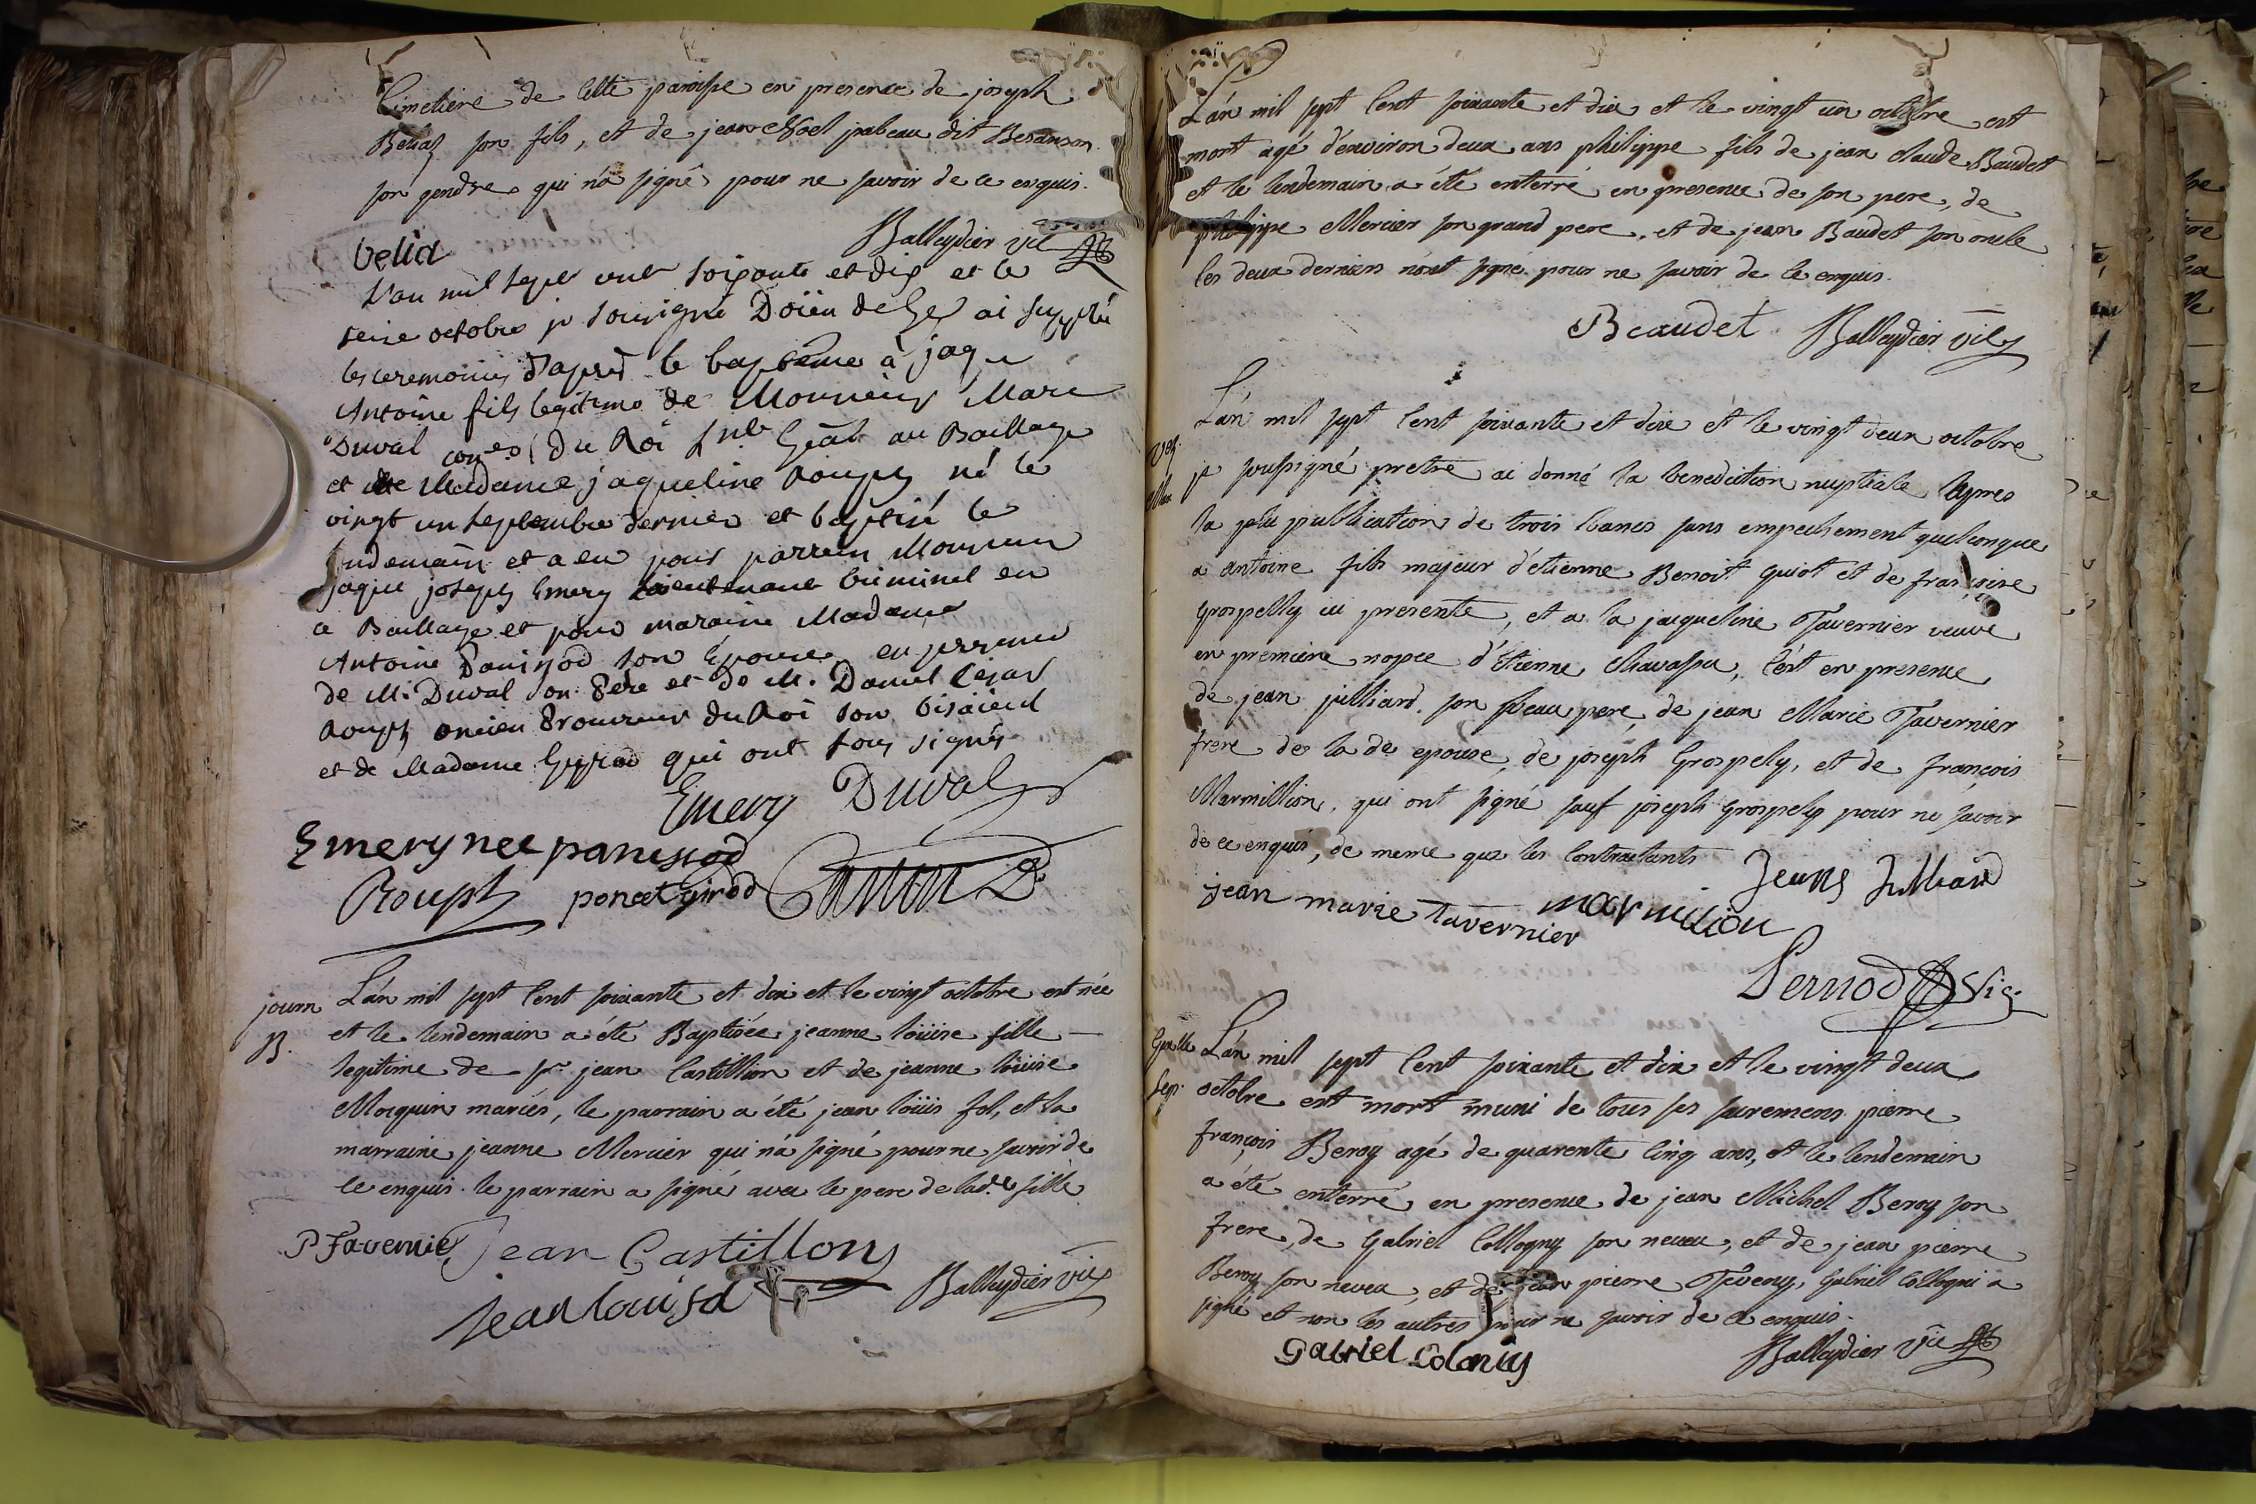 Cimetiere de Cette paroisse en presence de joseph
son fils, et de jean Noel jsabeau dit Besanson
son gendre qui n'a signé pour ne savoir de ce enquis.
Balleydier vic
velia
L'an mil sept cent soixante et dix et le
seize octobre je soussigné Doïen de Gex ai suppléé
les ceremonies d'après le baptême à jaque
Antoine fils legitime de Monsieur Marc
Duval Du Roi au Baillage
et de Madame jaqueline Rouph né le
vingt un septembre dernier et baptisé le
lendemain et a eu pour parrein Monsieur
jaque joseph Emery Lieutenant Criminel en
ce Baillage et pour maraine Madame
Antoine Panissod son Epouse en presence
de M. Duval son Pere et de M. Daniel Cesar
Rouph ancien Procureur du Roi son bisaieul
et de Madame qui ont tous signés
Emery Duval
Emery nee panissod
Rouph poncet girod
journ
B.
L'an mil sept Cent soixante et dix et le vingt octobre est née
et le lendemain a été Baptisée jeanne loüise fille
legitime de sr jean Castillion et de jeanne loüise
Moquin mariés, le parrain a été jean loüis fol, et la
marraine jeanne Mercier qui n'a signé pour ne savoir de
ce enquis. le parrain a signé avec le pere de lad.e fille
P Favernier Jean Castillon
Jean louis fol Balleydier vic
L'an mil sept Cent soixante et dix et le vingt un octobre est
mort agé d'environ deux ans philippe fils de jean claude Baudet
et le lendemain a été enterré en presence de son pere, de
philippe Mercier son grand pere, et de jean Baudet son oncle
les deux derniers n'ont signé pour ne savoir de ce enquis.
Beaudet Balleydier vic
L'an mil sept Cent soixante et dix et le vingt deux octobre
je soussigné pretre ai donné la benediction nuptiale apres
la publication de trois bancs sans empechement quelconque
a antoine fils majeur d'etienne Benoit guiot et de françoise
grospelly ici presente, et a la jacqueline Tavernier veuve
en premiere nopce d'Etienne Chavassu, C'est en presence
de jean julliard son beau pere, de jean Marie Tavernier
frere de la de epouse, de joseph Grospely, et de françois
Marmillion, qui ont signé sauf joseph grospely pour ne savoir
de ce enquis, de meme que les Contractants
Jeans Julliard
jean marie Tavernier marmilion
Pernod Vic
L'an mil sept Cent soixante et dix et le vingt deux
octobre est mort muni de tous ses sacremens pierre
françois Beroy agé de quarente Cinq ans, et le lendemain
a été enterré en presence de jean Michel Beroy son
frere, de Gabriel Collogny son neveu, et de jean pierre
Beroy son neveu, et de jean pierre Gabriel Collogni a
signé et non les autres pour ne savoir de ce enquis.
Gabriel Colonig
Balleydier Vic